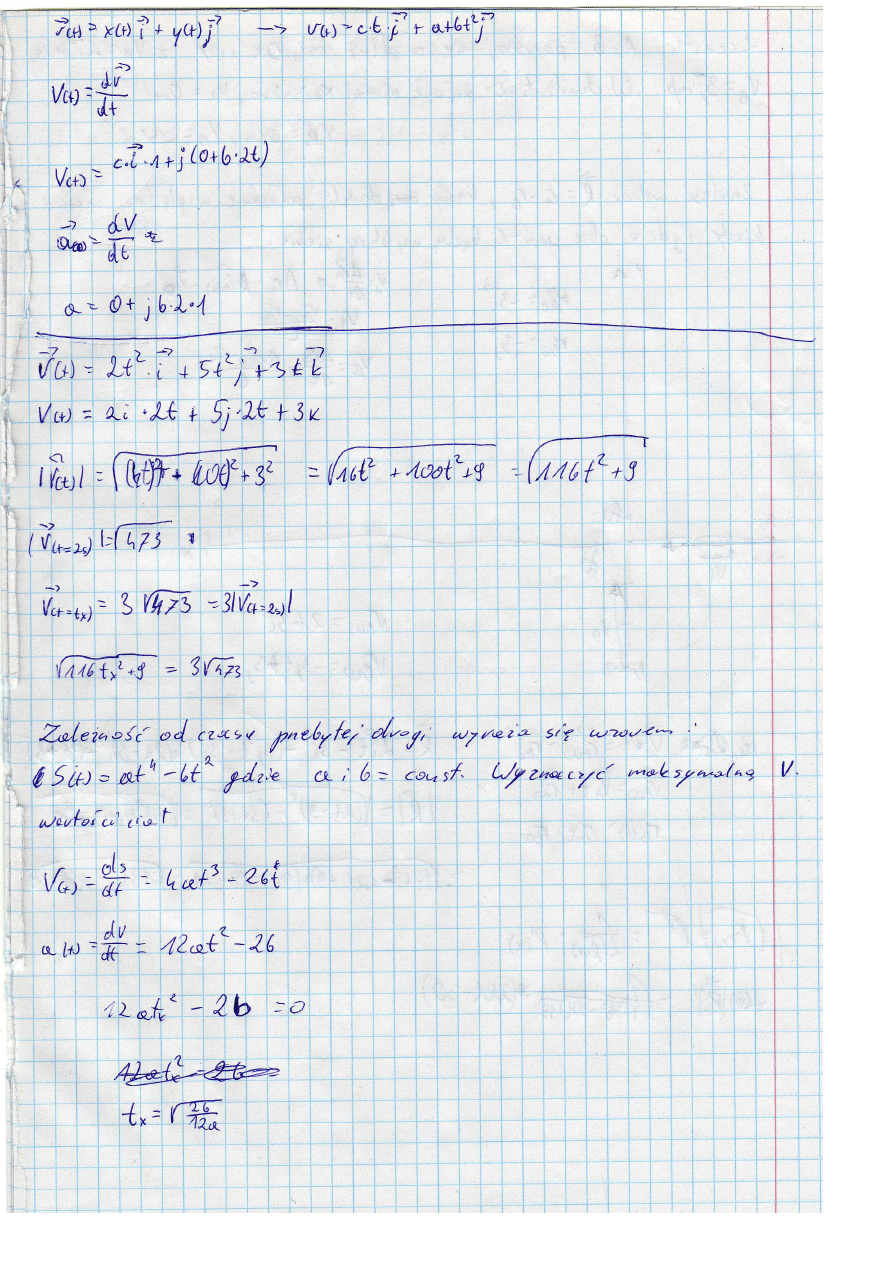 r⃗(t) = x(t) i⃗ + y(t) j⃗ → r(t) = c·t·i⃗ + a+bt² j⃗
V(t) = dr⃗/dt
V(t) = c·i⃗·1 + j(0+b·2t)
a⃗(t) = dV/dt
a = 0 + j b·2·1
r⃗(t) = 2t²·i⃗ + 5t² j⃗ + 3t k⃗
V(t) = 2i·2t + 5j·2t + 3k
|V⃗(t)| = √((4t)² + (10t)² + 3²) = √(16t² + 100t² + 9) = √(116t² + 9)
|V⃗(t=2s)| = √473
V⃗(t=tx) = 3√473 = 3|V⃗(t=2s)|
√(116tx² + 9) = 3√473
Zależność od czasu przebytej drogi wyraża się wzorem:
S(t) = at⁴ − bt² gdzie a i b = const. Wyznaczyć maksymalną V.
wartości ciał
V(t) = ds/dt = 4at³ − 2bt
a(t) = dV/dt = 12at² − 2b
12atx² − 2b = 0
12atx² − 2b
tx = √(2b/12a)